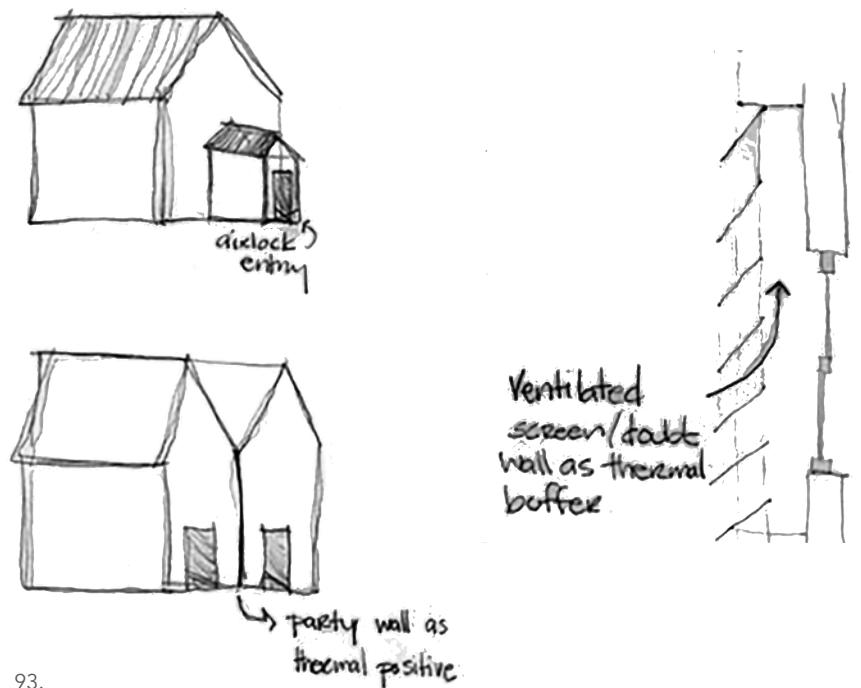 airlock
entry
Ventilated
screen/doubt
wall as thermal
buffer
party wall as
thermal positive
93.